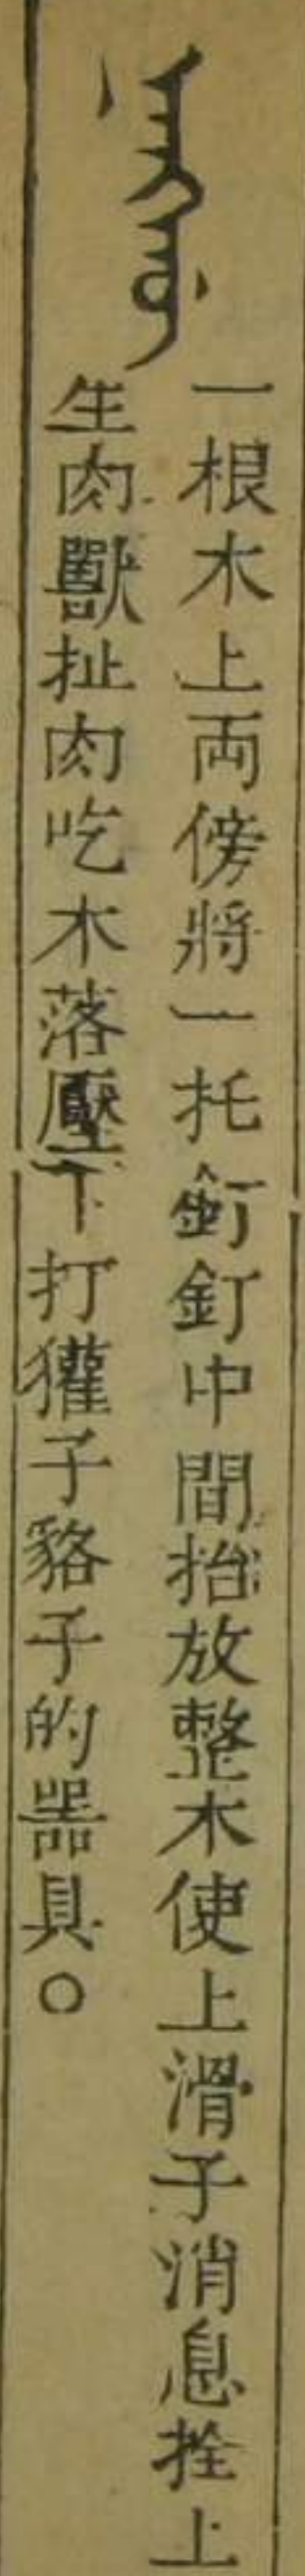 一根木上両傍將一托釘釘中間抬放整木使上滑子消息拴上
生肉獸扯肉吃木落壓下打獾子貉子的器具○